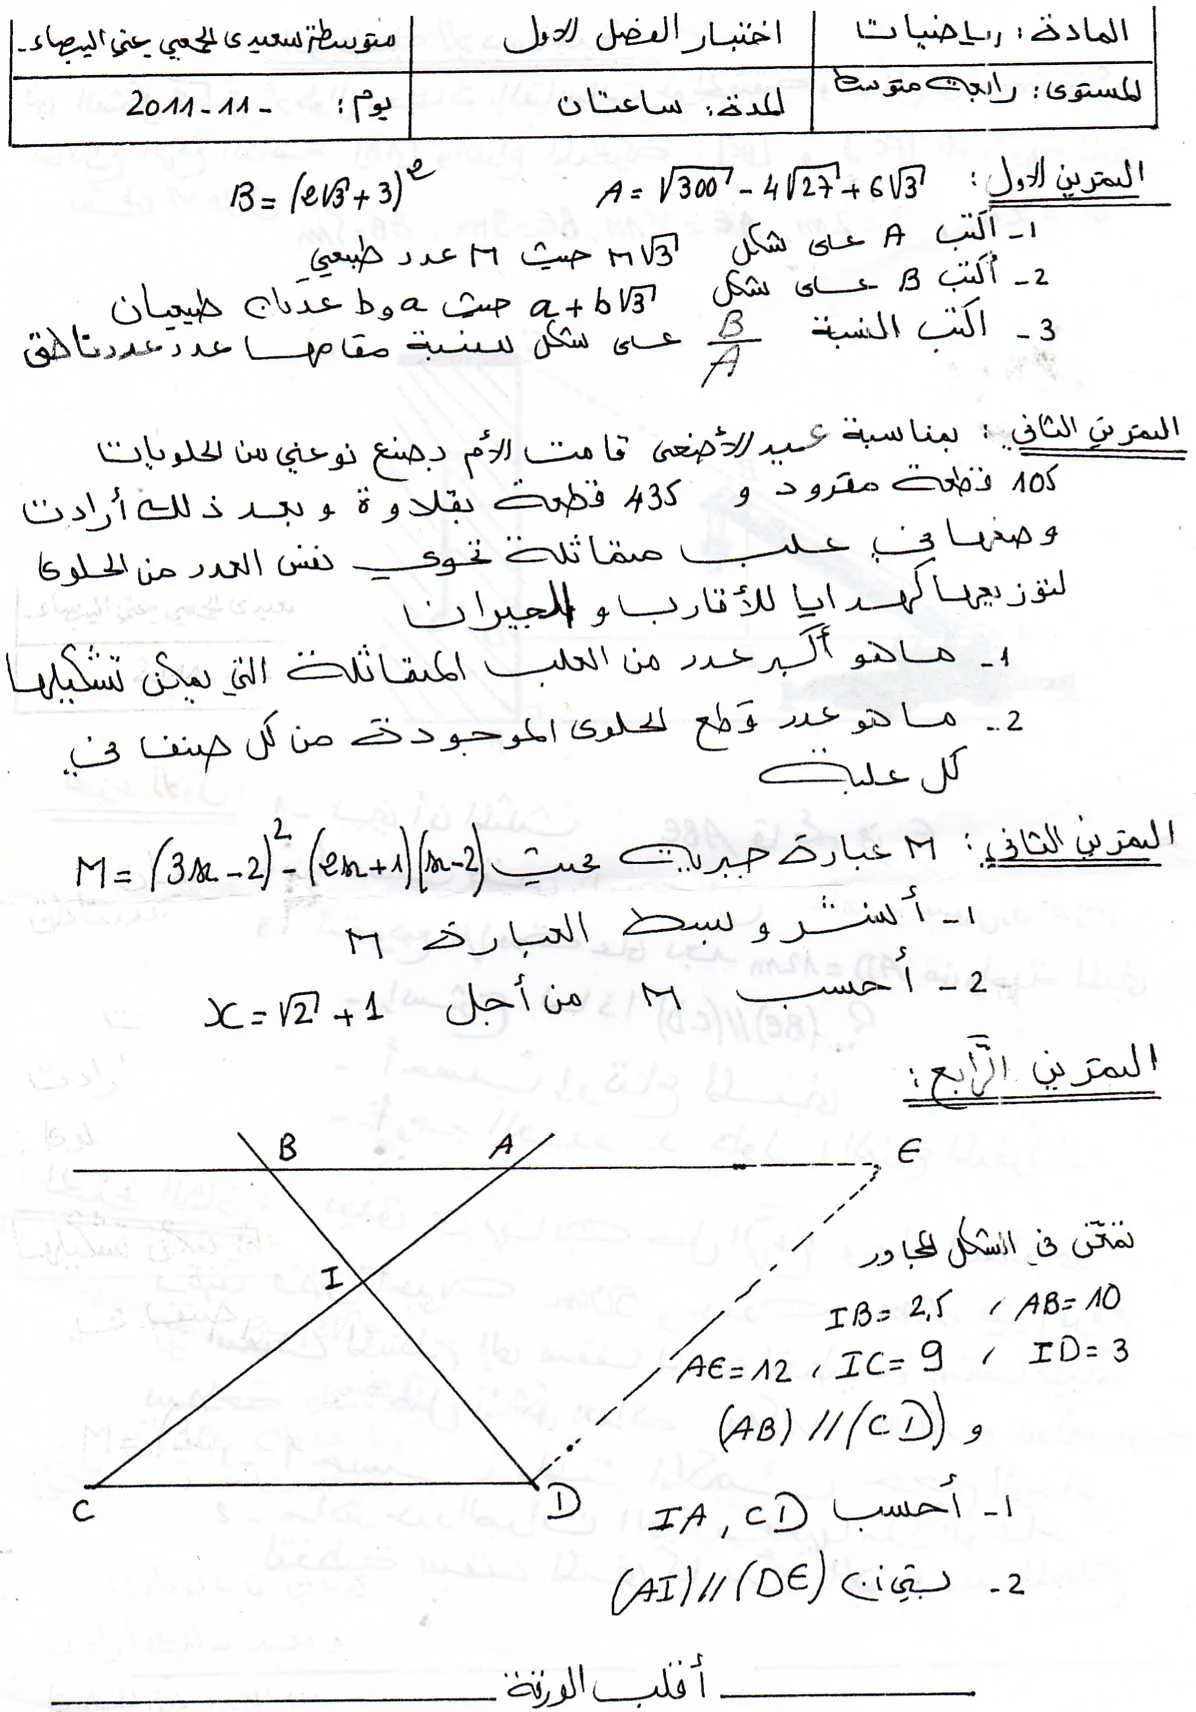 المادة: رياضيات
اختبار الفصل الاول
متوسطة سعيدي الجمعي عين البيضاء.
المستوى: رابعة متوسط
المدة: ساعتان
يوم: - 11 - 2011
التمرين الاول: A = √300 - 4√27 + 6√3 B = (2√3 + 3)²
1 - اكتب A على شكل M√3 حيث M عدد طبيعي
2 - أكتب B على شكل a + b√3 حيث a و b عددان طبيعيان
3 - اكتب النسبة B/A على شكل نسبة مقامها عدد عدد ناطق
التمرين الثاني: بمناسبة عيد الأضحى قامت الأم بصنع نوعين من الحلويات
105 قطعة مقرود و 435 قطعة بقلاوة و بعد ذلك أرادت
وضعها في علب متماثلة تحوي نفس العدد من الحلوى
لتوزيعها كهدايا للأقارب و الجيران
1 - ما هو أكبر عدد من العلب المتماثلة التي يمكن تشكيلها
2 - ما هو عدد قطع الحلوى الموجودة من كل صنف في
كل علبة
التمرين الثاني: M عبارة جبرية بحيث M = (3x - 2)² - (2x + 1)(x - 2)
1 - أنشر و بسط العبارة M
2 - أحسب M من أجل x = √2 + 1
التمرين الرابع:
B A E
I
C D
تمعّن في الشكل المجاور
AB = 10 ، IB = 2,5
ID = 3 ، IC = 9 ، AE = 12
و (AB) // (CD)
1 - أحسب IA , CD
2 - بين أن (AI) // (DE)
أقلب الورقة